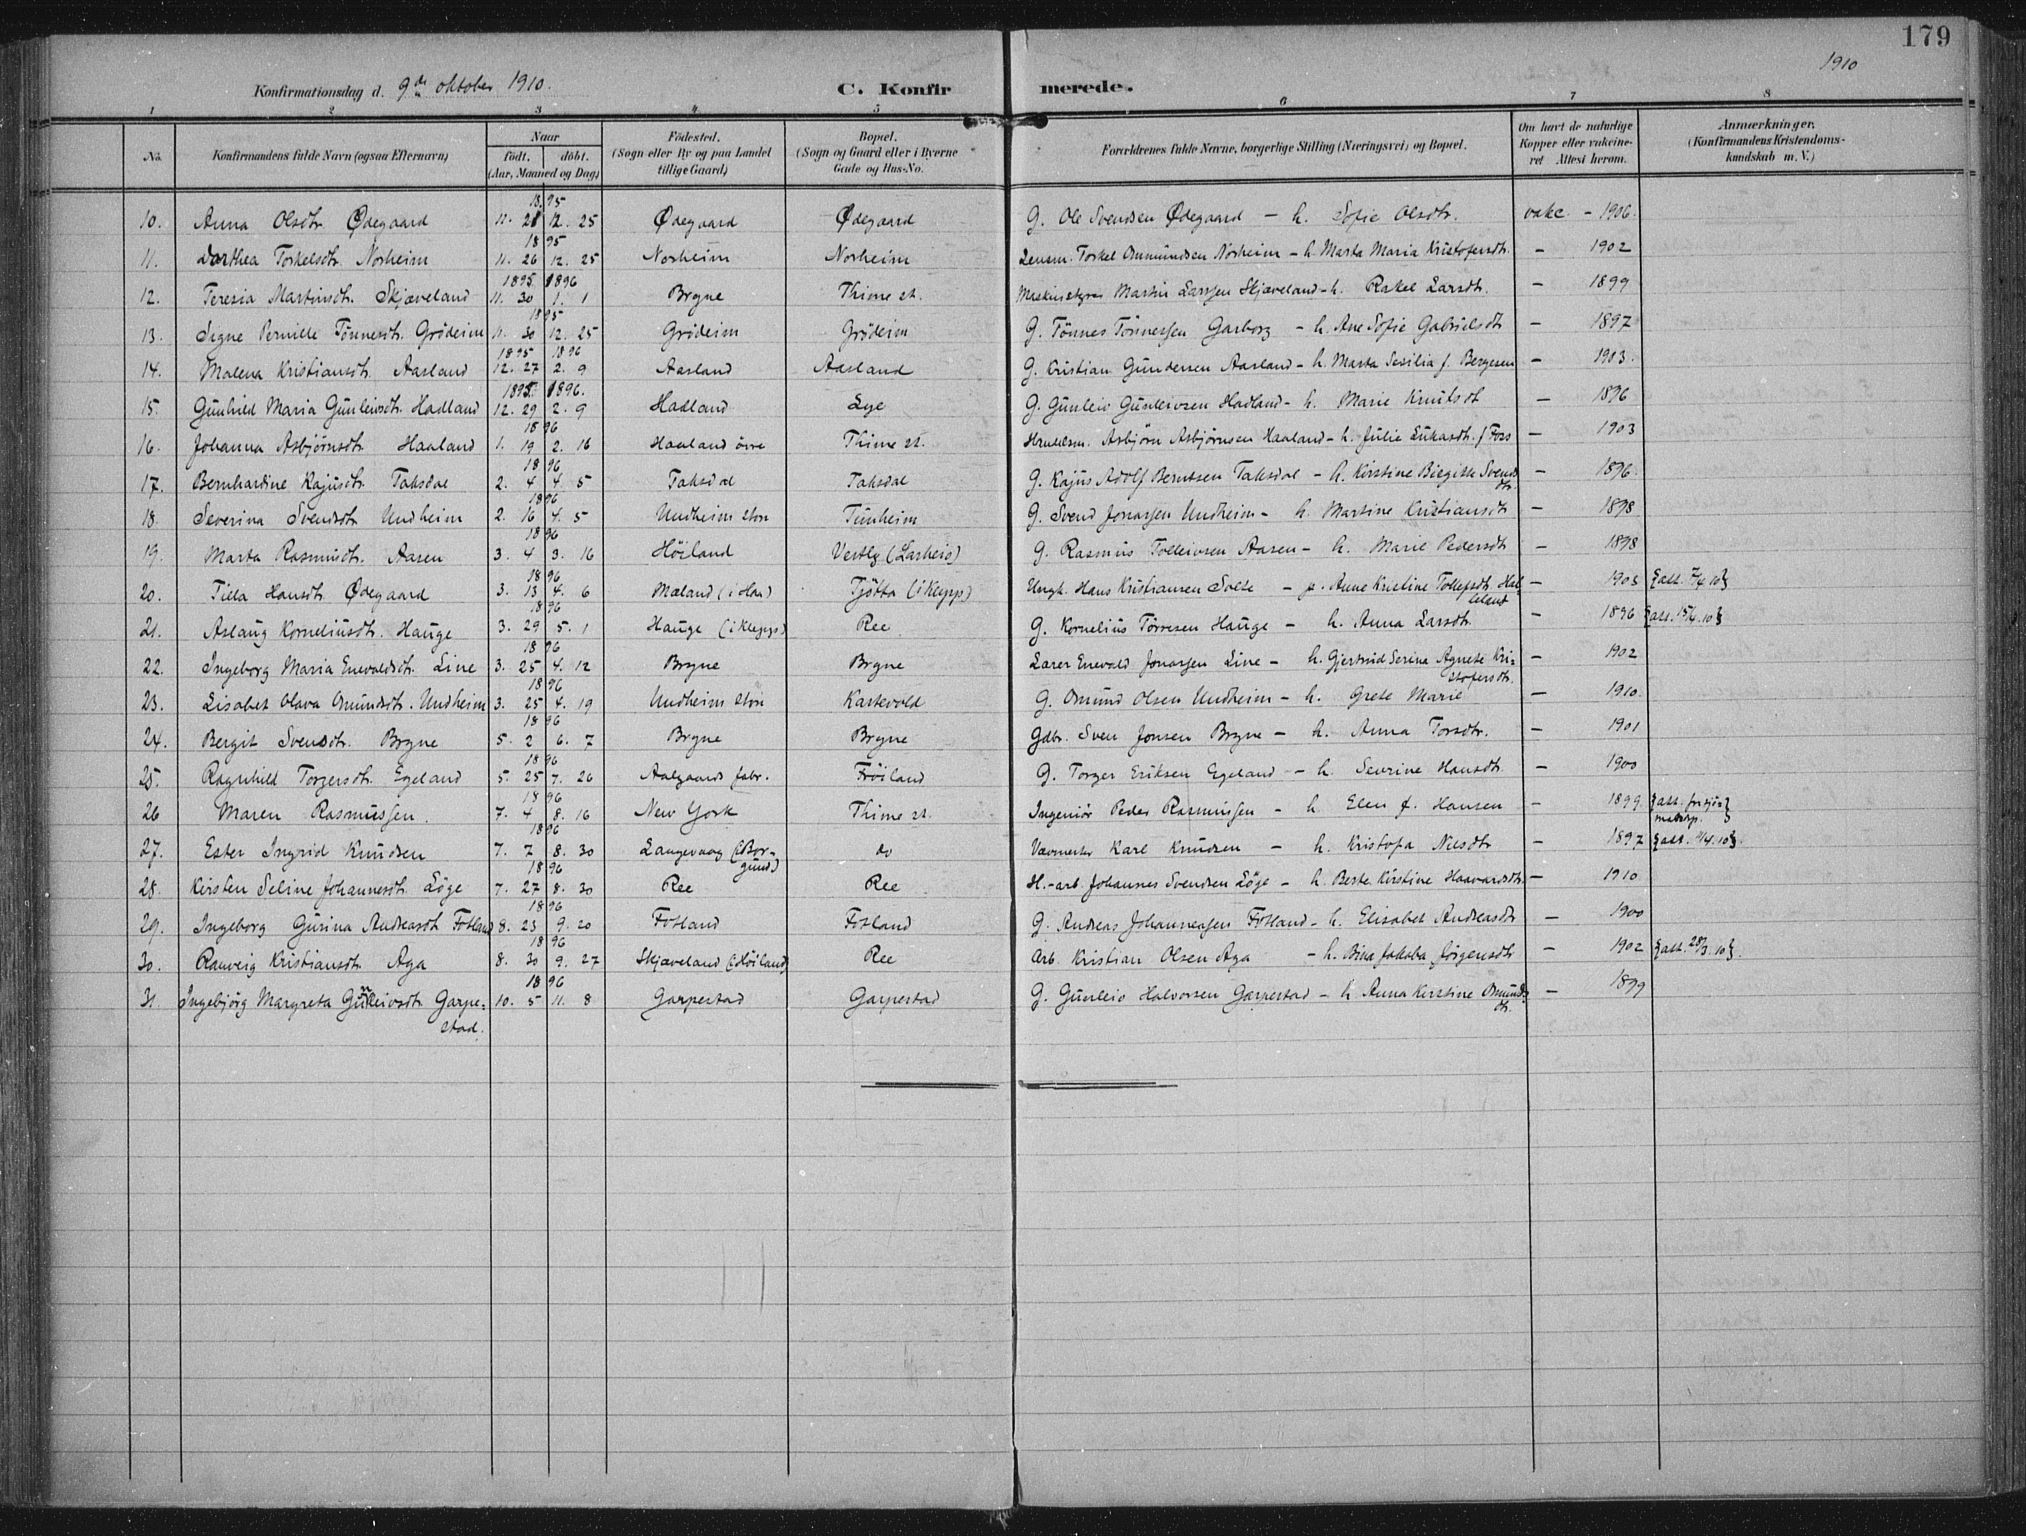 179
1910
Konfirmationsdag d. 9de oktober 1910.
C. Konfirmerede.
1 2 3 4 5 6 7 8
No. Konfirmandens fulde Navn (ogsaa Efternavn) Naar födt. döbt. (Aar, Maaned og Dag) Födested. (Sogn eller By og paa Landet tillige Gaard) Bopæl. (Sogn og Gaard eller i Byerne Gade og Hus-No. Forældrenes fulde Navne, borgerlige Stilling (Næringsvei) og Bopæl. Om havt de naturlige Kopper eller vakcineret Attest herom. Anmærkninger. (Konfirmandens Kristendomskundskab m. V.)
18.95
10. Anna Olsdtr. Ødegaard 11. 21 12. 25 Ødegaard Ødegaard G. Ole Svendsen Ødegaard - h. Sofie Olsdtr. vakc. - 1906.
1895
11. Dorthea Torkelsdtr. Norheim 11. 26 12. 25 Norheim Norheim Lensm. Torkel Ommundsen Norheim - h. Marta Maria Kristofersdtr. - 1902
1895 1896
12. Teresia Martinsdtr. Skjæveland 11. 30 1. 1 Bryne Thime st. Maskinstyrer Martin Larssen Skjæveland - h. Rakel Larsdtr. - 1899
1895
13. Signe Pernille Tönnesdtr. Grödeim 11. 30 12. 25 Grödeim Grödeim G. Tönnes Tönnessen Garborg - h. Ane Sofie Gabrielsdtr - 1897
1895 1896
14. Malena Kristiansdtr. Aasland 12. 27 2. 9 Aasland Aasland G. Kristian Gundersen Aasland - h. Marta Sesilia f. Bergesen - 1903.
1895 1896.
15. Gunhild Maria Gunleivsdtr. Hadland 12. 29 2. 9 Hadland Lye G. Gunleiv Gunleivsen Hadland - h. Marie Knutsdt - 1896
1896
16. Johanna Asbjörnsdtr. Haaland 1. 19 2. 16 Haaland övre Thime st. Handelsm. Asbjörn Asbjörnsen Haaland - h. Julie Lukasdtr. f Foss - 1903
1896
17. Bernhardine Kajusdtr. Taksdal 2. 4 4. 5 Taksdal Taksdal G. Kajus Adolf Berntsen Taksdal - h. Kirstine Birgitte Svends dtr. - 1896.
1896
18. Severina Svendsdtr. Undheim 2. 16 4. 5 Undheim stor Tunheim G. Svend Jonassen Undheim - h. Martine Kristiansdtr - 1898
1896
19. Marta Rasmusdtr. Aasen 3. 4 3. 16 Höiland Vestly G. Rasmus Tolleivsen Aasen - h. Marie Pedersdtr - 1898
1896
20. Tilla Hansdtr Ødegaard 3. 13 4. 6 Mæland (i Haa) Tjötta (i Klepp) Ungk. Hans Kristiansen Solte - p. Anne Kristine Tollefsdtr. - 1903 {att. 7/4.10}
1896
21. Aslaug Korneliusdtr. Hauge 3. 29 5. 1 Hauge (i Klepp) Ree G. Kornelius Törresen Hauge - h. Anna Larsdtr. - 1896 {att. 15/4.10}
1896
22. Ingeborg Maria Enevaldsdtr. Line 3. 25 4. 12 Bryne Bryne Lærer Enevald Jonassen Line - h. Gjertrud Serine Agnete Kri-
stofersdtr. - 1902
1896
23. Lisabet Olava Omundsdtr. Undheim 3. 25 4. 19 Undheim stor Kartevold G. Omund Olsen Undheim - h. Grete Marie - 1910.
1896
24. Bergit Svensdtr. Bryne 5. 2 6. 7 Bryne Bryne Gdbr. Sven Jonsen Bryne - h. Anna Torsdtr. - 1901
1896
25. Ragnhild Torgersdtr. Egeland 5. 25 7. 26 Aalgaards fabr. Fröiland G. Torger Eriksen Egeland - h Sevrine Hansdtr. - 1900
1896
26 Maren Rasmussen. 7. 4 8. 16 New York Thime st. Ingeniör Peder Rasmussen - h Elen f. Hansen - 1899.
1896
27. Ester Ingrid Knudsen 7. 7 8. 30 Langevaag (i Bor-
gund) do Vævmester Karl Knudsen - h. Kristofa Nilsdtr - 1897
1896
28. Kirsten Seline Johannesdtr. Löge 7. 27 8. 30 Ree Ree H.-arb. Johannes Svendsen Löge - h. Berte Kirstine Haavardsdtr. - 1910
1896
29. Ingeborg Gurina Andreasdtr Fotland 8. 23 9. 20 Fotland Fotland G. Andreas Johannessen Fotland - h. Elisabet Andreasdtr - 1900
1896
30. Ranveig Kristiansdtr. Aga 8. 30 9. 27 Skjæveland (i Höiland) Ree arb. Kristian Olsen Aga - h. Bina Jakoba Jörgensdtr. - 1902 {att. 28/3.10}
1896
31. Ingebjörg Margreta Gunleivsdtr Garpe-
stad. 10. 5 11. 8 Garpestad Garpestad G. Gunleiv Halvorsen Garpestad - h Anna Kirstine Omunds
dtr. - 1899